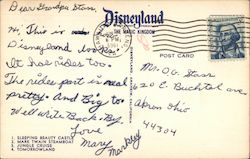 Dear Grandpa Stan,
Hi, This is
Disneyland looks.
It has rides too.
The rides part is real
pretty. And Big to
Well Write Back. By.
Love
Mary
Disneyland
THE MAGIC KINGDOM
POST CARD
Mr. O.G.
620 E. Buchtel ave.
Akron Ohio
44304
1. SLEEPING BEAUTY CASTLE
2. MARK TWAIN STEAMBOAT
3. JUNGLE CRUISE
4. TOMORROWLAND